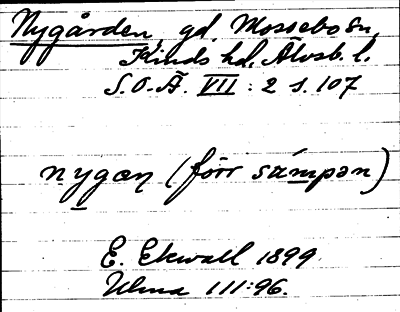 Nygården, gd, Mossebo sn,
Kinds hd, Älvsb. l.
S.O.Ä. VII : 2 s. 107
nygaɳ (förr sámpən)
E. Ekwall 1899.
Ulma 111:96.